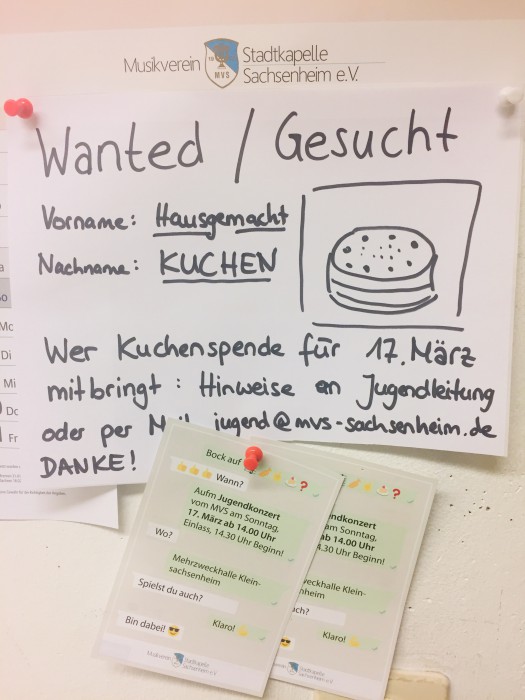 Musikverein Stadtkapelle
Sachsenheim e.V.
MVS
Wanted / Gesucht
Vorname: Hausgemacht
Nachname: KUCHEN
Wer Kuchenspende für 17. März
mitbringt: Hinweise an Jugendleitung
oder per jugend@mvs-sachsenheim.de
DANKE!
Mo
Di
Mi
Do
Fr
Bock auf ?
Wann?
Aufm Jugendkonzert
vom MVS am Sonntag,
17. März ab 14.00 Uhr
Einlass, 14.30 Uhr Beginn!
Wo?
Mehrzweckhalle Klein-
sachsenheim
Spielst du auch?
Klaro!
Bin dabei! 😎
Musikverein Stadtkapelle
Sachsenheim e.V.
?
ndkonzert
am Sonntag,
ab 14.00 Uhr
4.30 Uhr Beginn!
weckhalle Klein-
nheim
ach?
Klaro!
Stadtkapelle
Sachsenheim e.V.